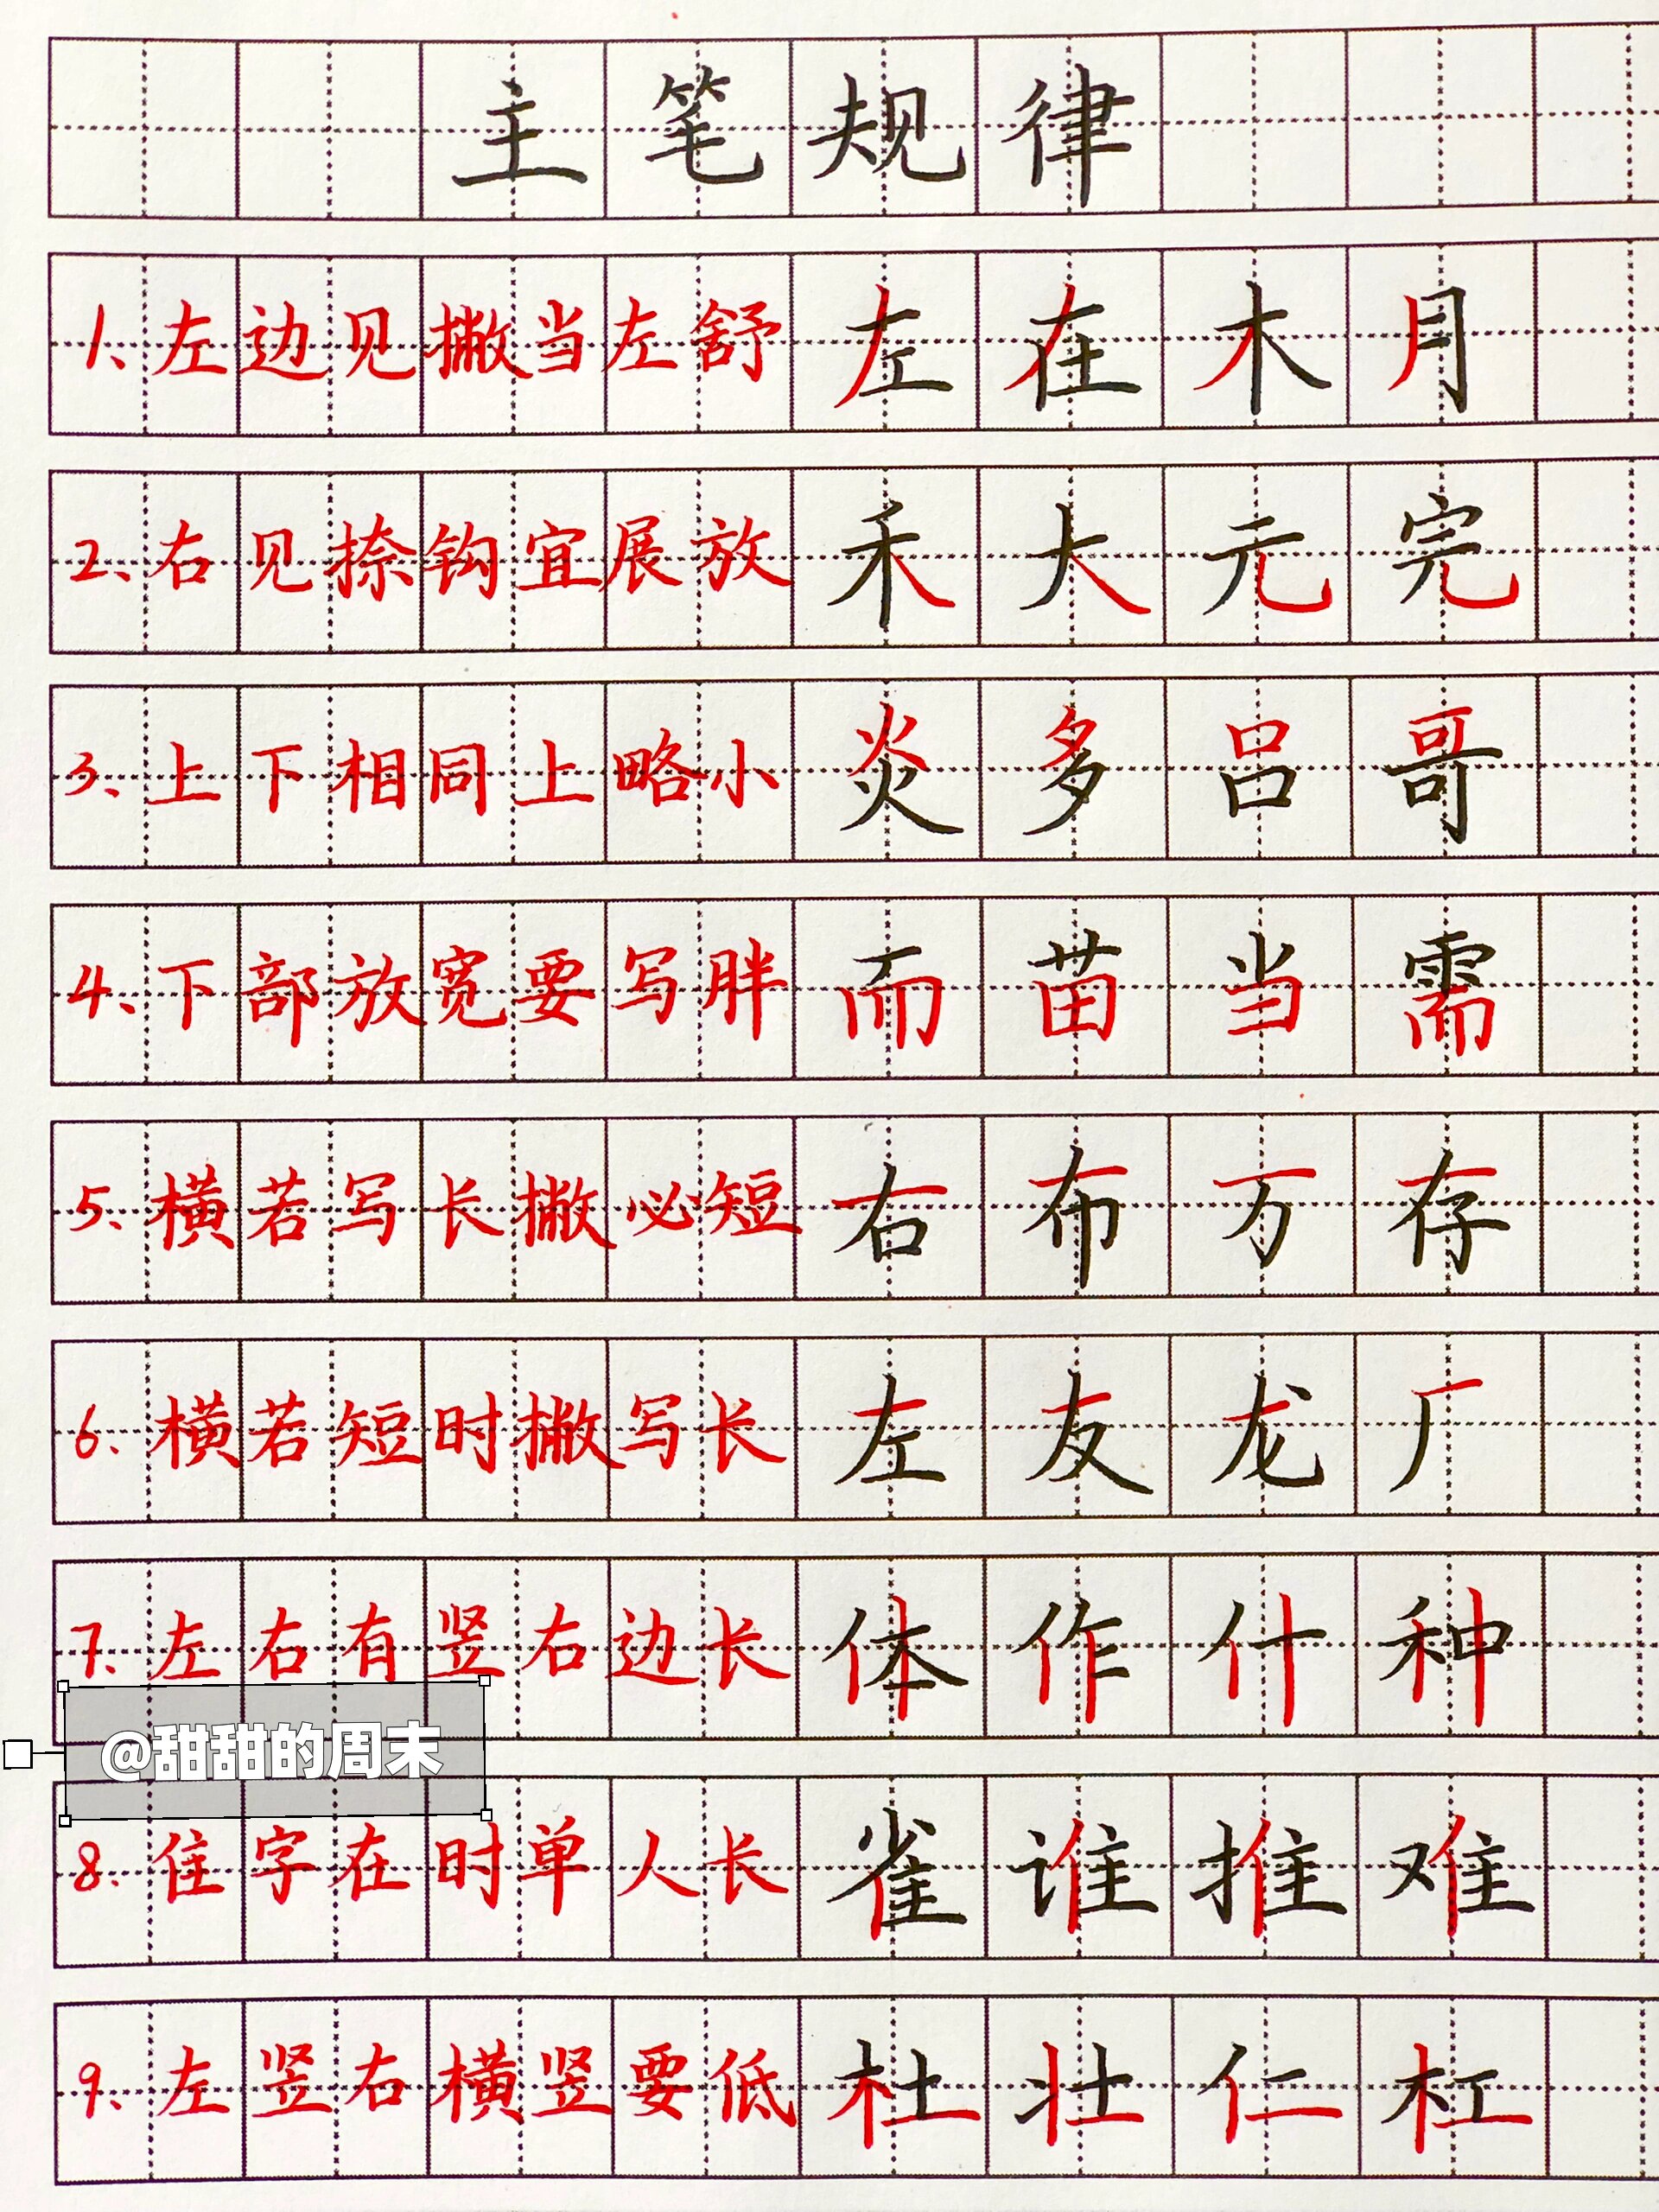 主笔规律
1、左边见撇当左舒 左 在 木 月
2、右见捺钩宜展放 禾 大 元 完
3、上下相同上略小 炎 多 吕 哥
4、下部放宽要写胖 而 苗 当 需
5、横若写长撇必短 右 布 万 存
6、横若短时撇写长 左 友 龙 厂
7、左右有竖右边长 体 作 什 种
@甜甜的周末
8、隹字在时单人长 雀 谁 推 难
9、左竖右横竖要低 杜 壮 仁 杠